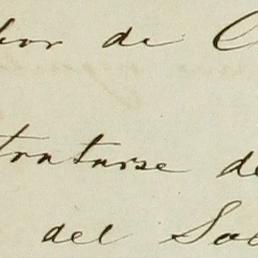 bor de C
tratarse de
del Sol